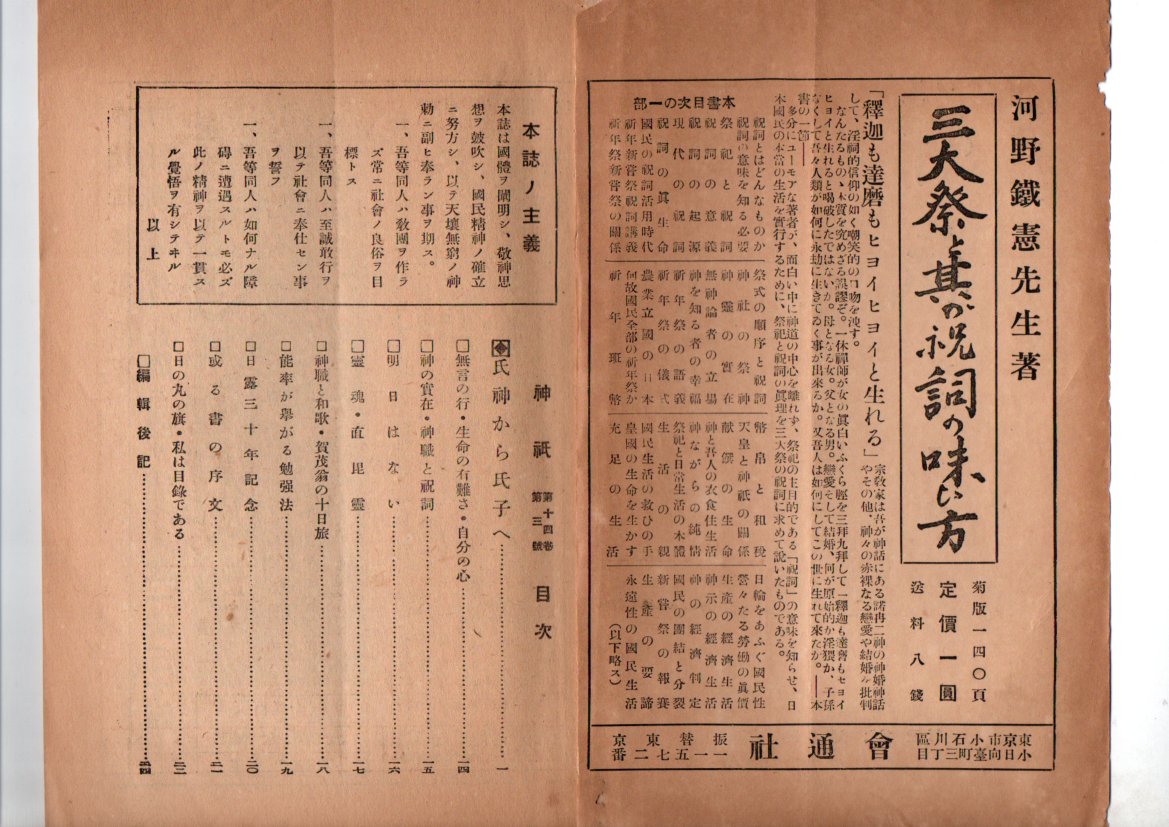 河野鐵憲先生著
三大祭と其の祝詞の味ひ方
菊版一四〇頁
定價一圓
送料八錢
「釋迦も達磨もヒヨイヒヨイと生れる」
宗敎家は吾が神話にある諾冉二神の神婚神話
やその他、神々の赤裸なる戀愛や結婚を批判
して、淫祠的信仰の如く嘲笑的の口吻を洩す。
なんたるもの、本質を究めざる誤謬ぞ。一休禪師が女の眞白いふくら脛を三拜九拜して「釋迦も達磨もヒヨイ
ヒヨイと生れると喝破したではないか。母となる女。父となる男。戀愛そして結婚、何が原始的か淫猥か、子孫
なくして吾々人類が如何に永劫に生きてゐく事が出來るか。又吾人は如何にしてこの世に生れて來たか。――本
書の一節――
多分にユーモアな著者が、面白い中に神道の中心を離れず、祭祀の主目的である「祝詞」の意味を知らせ、日
本國民の本當の生活を實行するために、祭祀と祝詞の眞理を三大祭の祝詞に求めて說いたものである。
本書目次の一部
祝詞とはどんなものか
祝詞の意味を知る必要
祭祀と祝詞
祝詞の意義
祝詞の起源
現代の祝詞
祝詞の眞生命
國民の祝詞活用時代
祈年新嘗祭祝詞講義
祈年祭新嘗祭の關係
祭式の順序と祝詞
神社の祭神
神靈の實在
無神論者の立場
神を知る者の幸福
祈年祭の語義
祈年祭の儀式
農業立國の日本
何故國民全部の祈年祭か
祈年班幣
幣帛と和稅
天皇と神祇の關係
献饌の生命
神と吾人の衣食住生活
神ながらの純情
祭祀と日常生活の本體
生活の親
國民生活の救ひの手
皇國の生命を生かす
充足の生活
日輪をあふぐ國民性
營々たる勞働の眞價
生產の經濟生活
神示の經濟生活
神の經濟制定
國民の團結と分裂
新嘗祭の報賽
生產の要諦
永遠性の國民生活
（以下略ス）
東京市小石川區
小日向臺町三丁目
會通社
振替東京
一一五七二番
本誌ノ主義
本誌は國體ヲ闡明シ、敬神思
想ヲ皷吹シ、國民精神ノ確立
ニ努力シ、以テ天壤無窮ノ神
勅ニ副ヒ奉ラン事ヲ期ス。
一、吾等同人ハ敎團ヲ作ラ
ズ常ニ社會ノ良俗ヲ目
標トス
一、吾等同人ハ至誠敢行ヲ
以テ社會ニ奉仕セン事
ヲ誓フ
一、吾等同人ハ如何ナル障
碍ニ遭遇スルトモ必ズ
此ノ精神ヲ以テ一貫ス
ル覺悟ヲ有シテヰル
以上
神祇 第十四卷 第三號 目次
氏神から氏子へ……一
□無言の行・生命の有難さ・自分の心……一四
□神の實在・神職と祝詞……一五
□明日はない……一六
□靈魂・直毘靈……一七
□神職と和歌・賀茂翁の十日旅……一八
□能率が擧がる勉强法……一九
□日露三十年記念……二〇
□或る書の序文……二一
□日の丸の旗・私は目錄である……二二
□編輯後記……二四